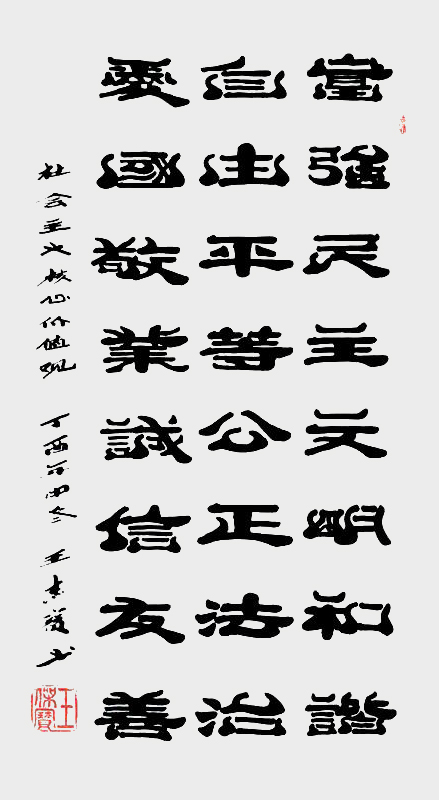 富強民主文明和諧
自由平等公正法治
愛國敬業誠信友善
社会主义核心价值观 丁酉年 冬 王 书